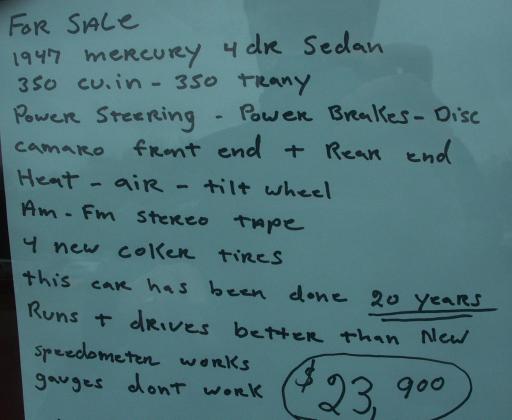 FOR SALE
1947 mercury 4 dr Sedan
350 cu.in - 350 trany
Power Steering - Power Brakes - Disc
camaro front end + Rear end
Heat - air - tilt wheel
Am - Fm stereo tape
4 new coker tires
this car has been done 20 years
Runs + drives better than New
speedometer works
gauges dont work
$23,900